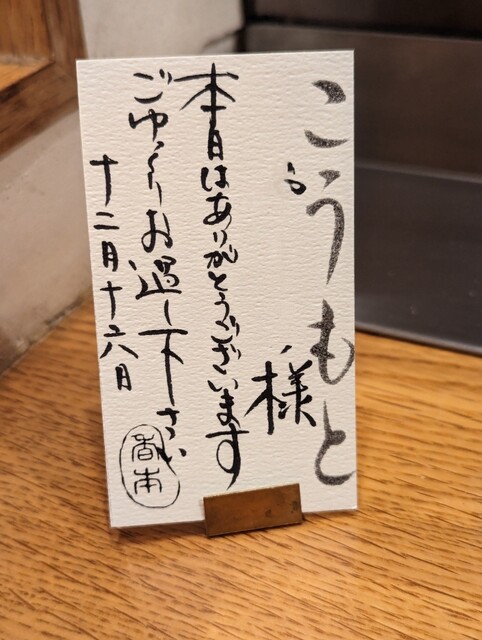 こうもと
様
本日はありがとうございます
ごゆっくりお過し下さい
十二月十六日
香本